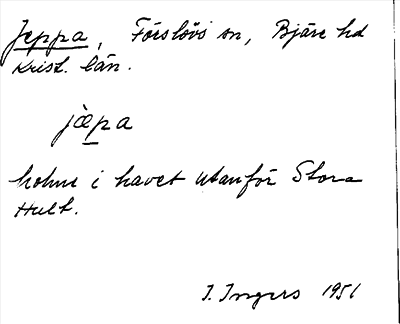 Jeppa, Förslövs sn, Bjäre hd
Krist. län.
jæ̀pa
holme i havet utanför Stora
Hult.
I. Ingers 1951